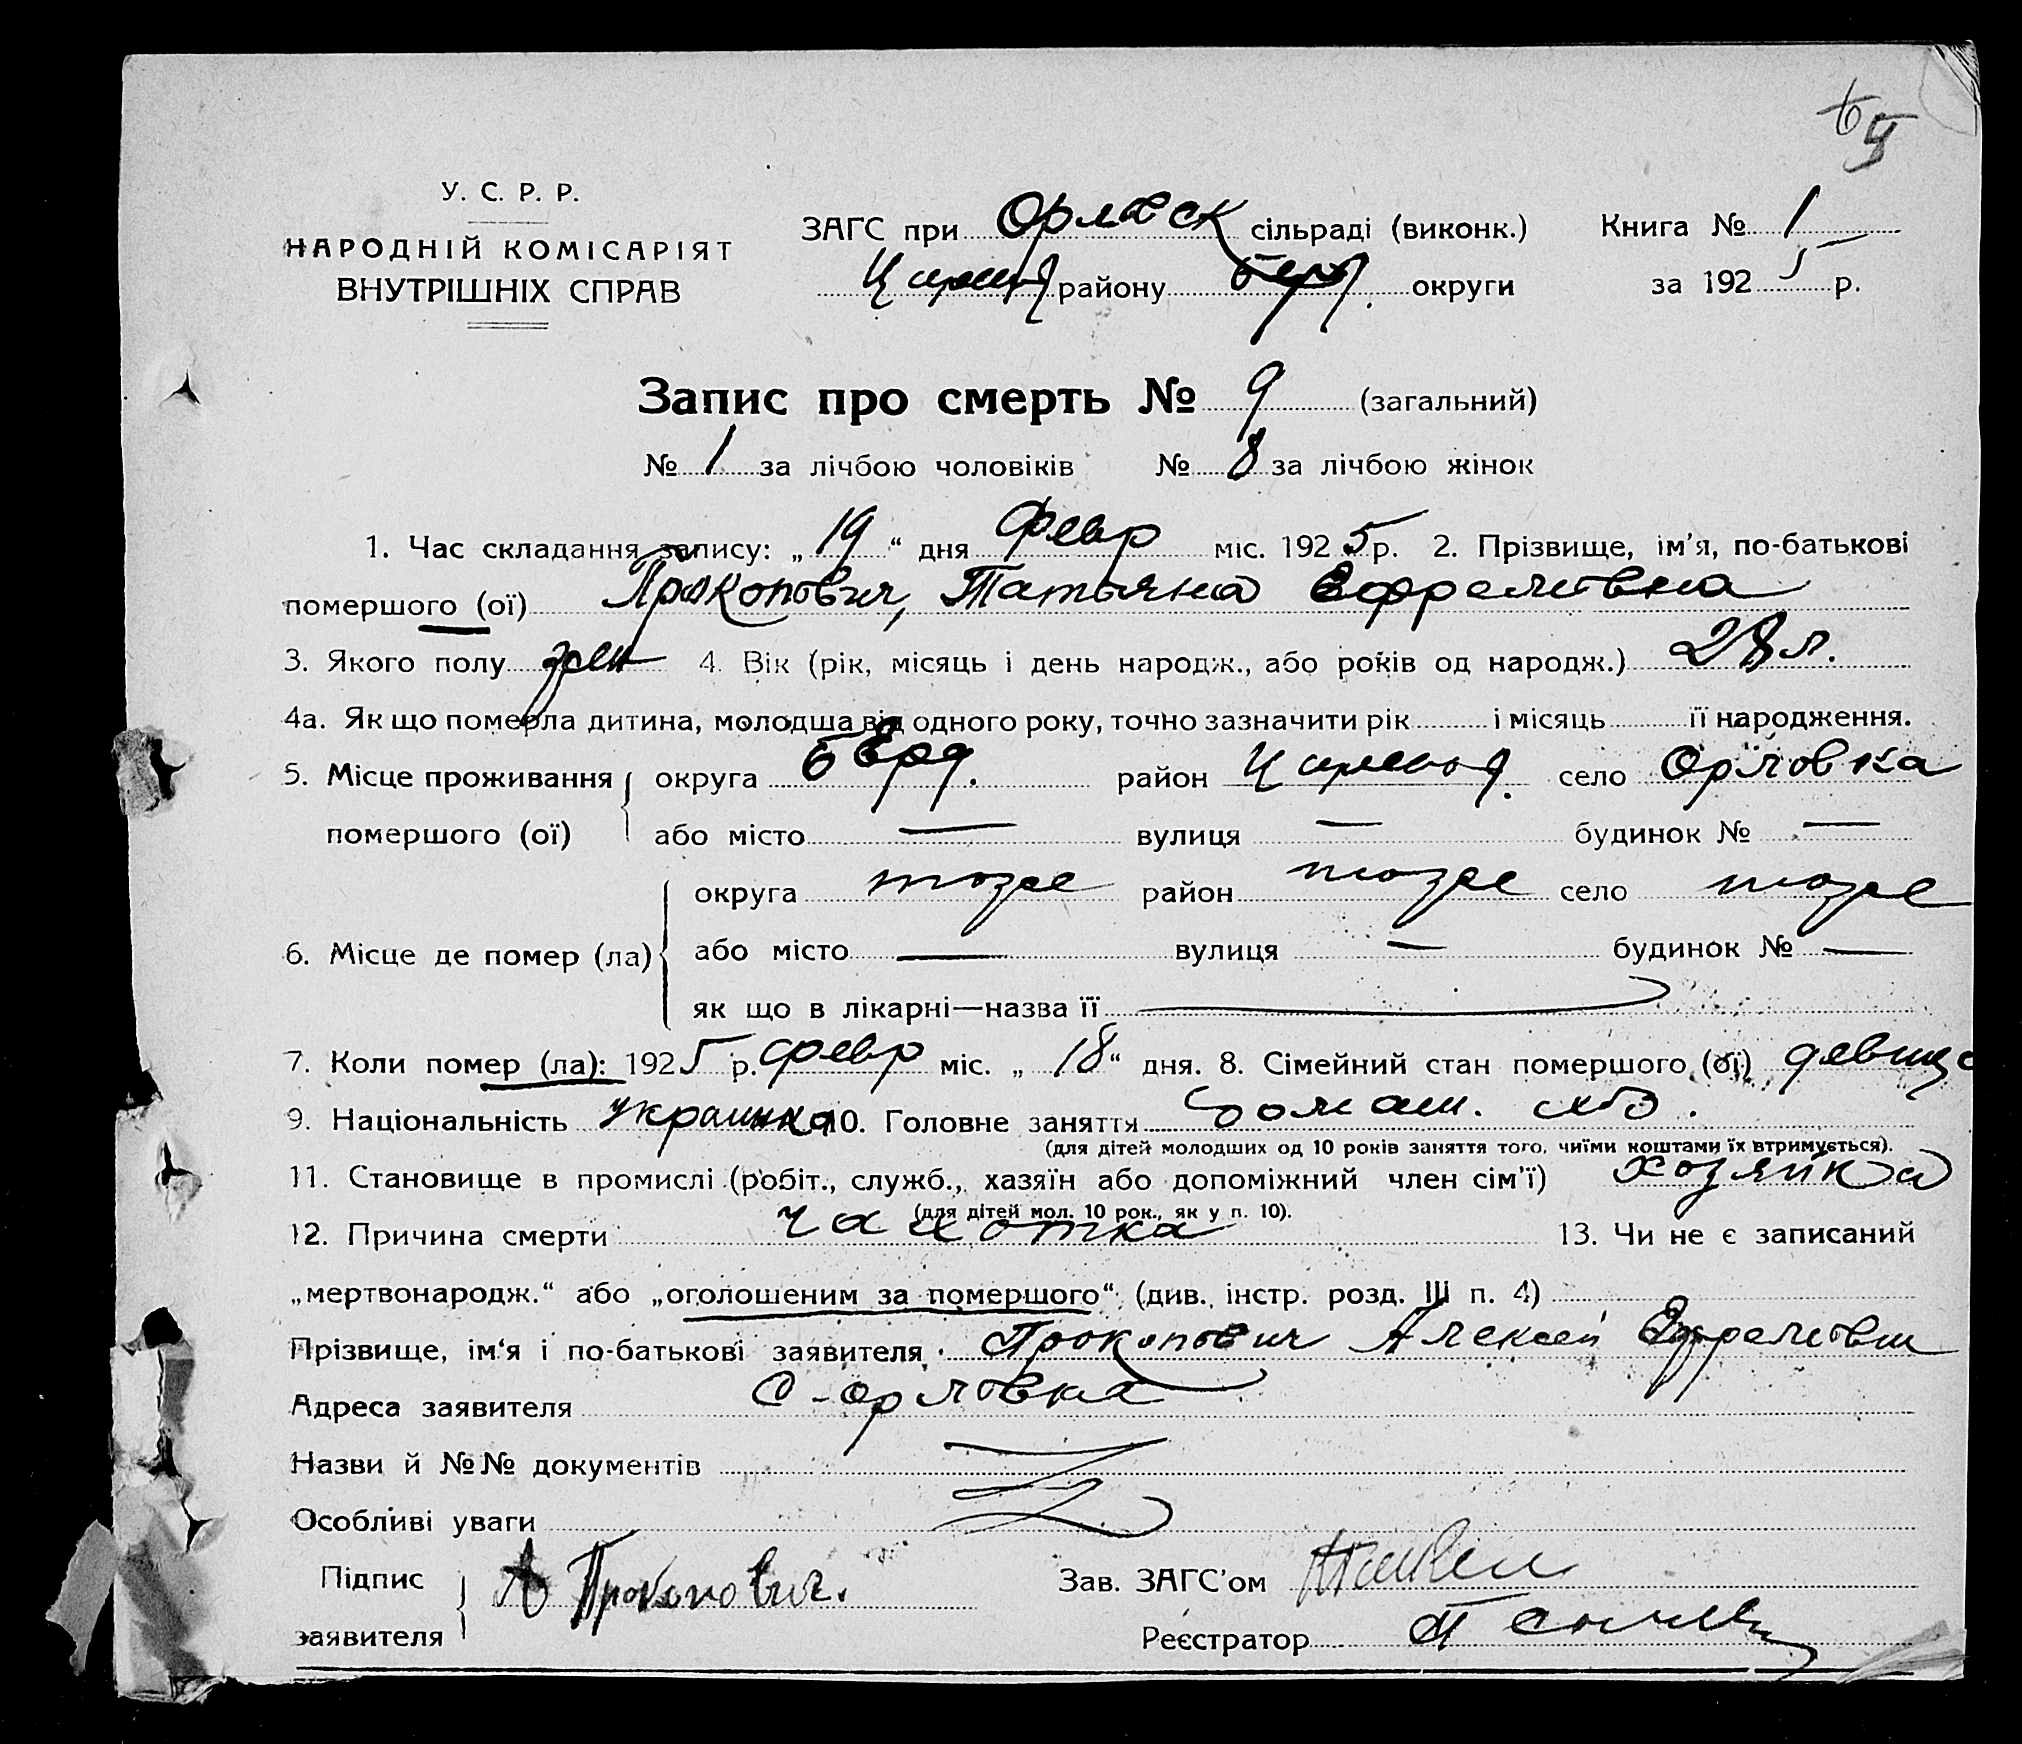 У. С. Р. Р.
НАРОДНІЙ КОМІСАРІЯТ
ВНУТРІШНІХ СПРАВ
ЗАГС при Орловск сільраді (виконк.) Книга № 1
району Берд. округи за 192 5 р.
Запис про смерть № 9 (загальний)
№ 1 за лічбою чоловіків № 8 за лічбою жінок
1. Час складання запису: „ 19 “ дня февр міс. 192 5 р. 2. Прізвище, ім’я, по-батькові
помершого (ої) Прокопович, Татьяна Ефремовна
3. Якого полу жен 4. Вік (рік, місяць і день народж., або років од народж.) 28 л.
4а. Як що померла дитина, молодша від одного року, точно зазначити рік і місяць її народження.
5. Місце проживання округа Берд. район село Орловка
помершого (ої) або місто — вулиця — будинок № —
округа тоже район тоже село тоже
6. Місце де помер (ла) або місто — вулиця — будинок № —
як що в лікарні—назва її —
7. Коли помер (ла): 192 5 р. февр міс. „ 18 “ дня. 8. Сімейний стан помершого (ої) девица
9. Національність украинка 10. Головне заняття
(для дітей молодших од 10 років заняття того, чиїми коштами їх втримується).
11. Становище в промислі (робіт., служб., хазяїн або допоміжний член сім’ї) хозяйка
(для дітей мол. 10 рок., як у п. 10).
12. Причина смерти чахотка 13. Чи не є записаний
„мертвонародж.“ або „оголошеним за помершого“ (див. інстр. розд. III п. 4)
Прізвище, ім‘я і по-батькові заявителя Прокопович Алексей Ефремович
Адреса заявителя с-Орловка
Назви й №№ документів
Особливі уваги
Підпис А Прокопович. Зав. ЗАГС’ом
заявителя Реєстратор